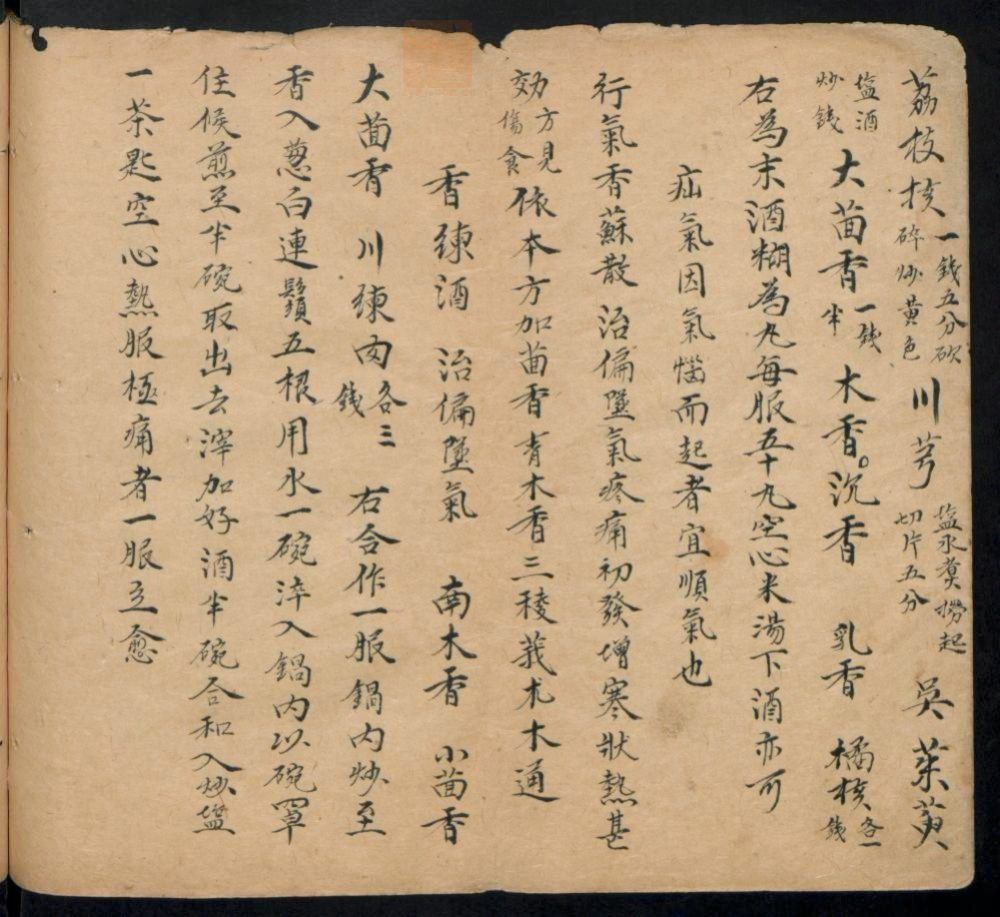 荔枝核一錢五分砍碎炒黄色川芎塩水煑撈起切片五分吳茱萸
塩酒炒錢大茴香一錢半木香。沉香乳香橘核各一錢
右為末酒糊為丸每服五十九空心米湯下酒亦可
疝氣因氣惱而起者宜順氣也
行氣香蘇散治偏墜氣疼痛初發增寒狀熱甚
効方見傷食依本方加茴香青木香三稜莪朮木通
香練酒治偏墜氣南木香小茴香
大茴香川練肉各三錢右合作一服鍋内炒至
香入葱白連鬚五根用水一碗淬入鍋内以碗罩
住候煎至半碗取出去滓加好酒半碗合和入炒塩
一茶匙空心熱服極痛者一服立愈